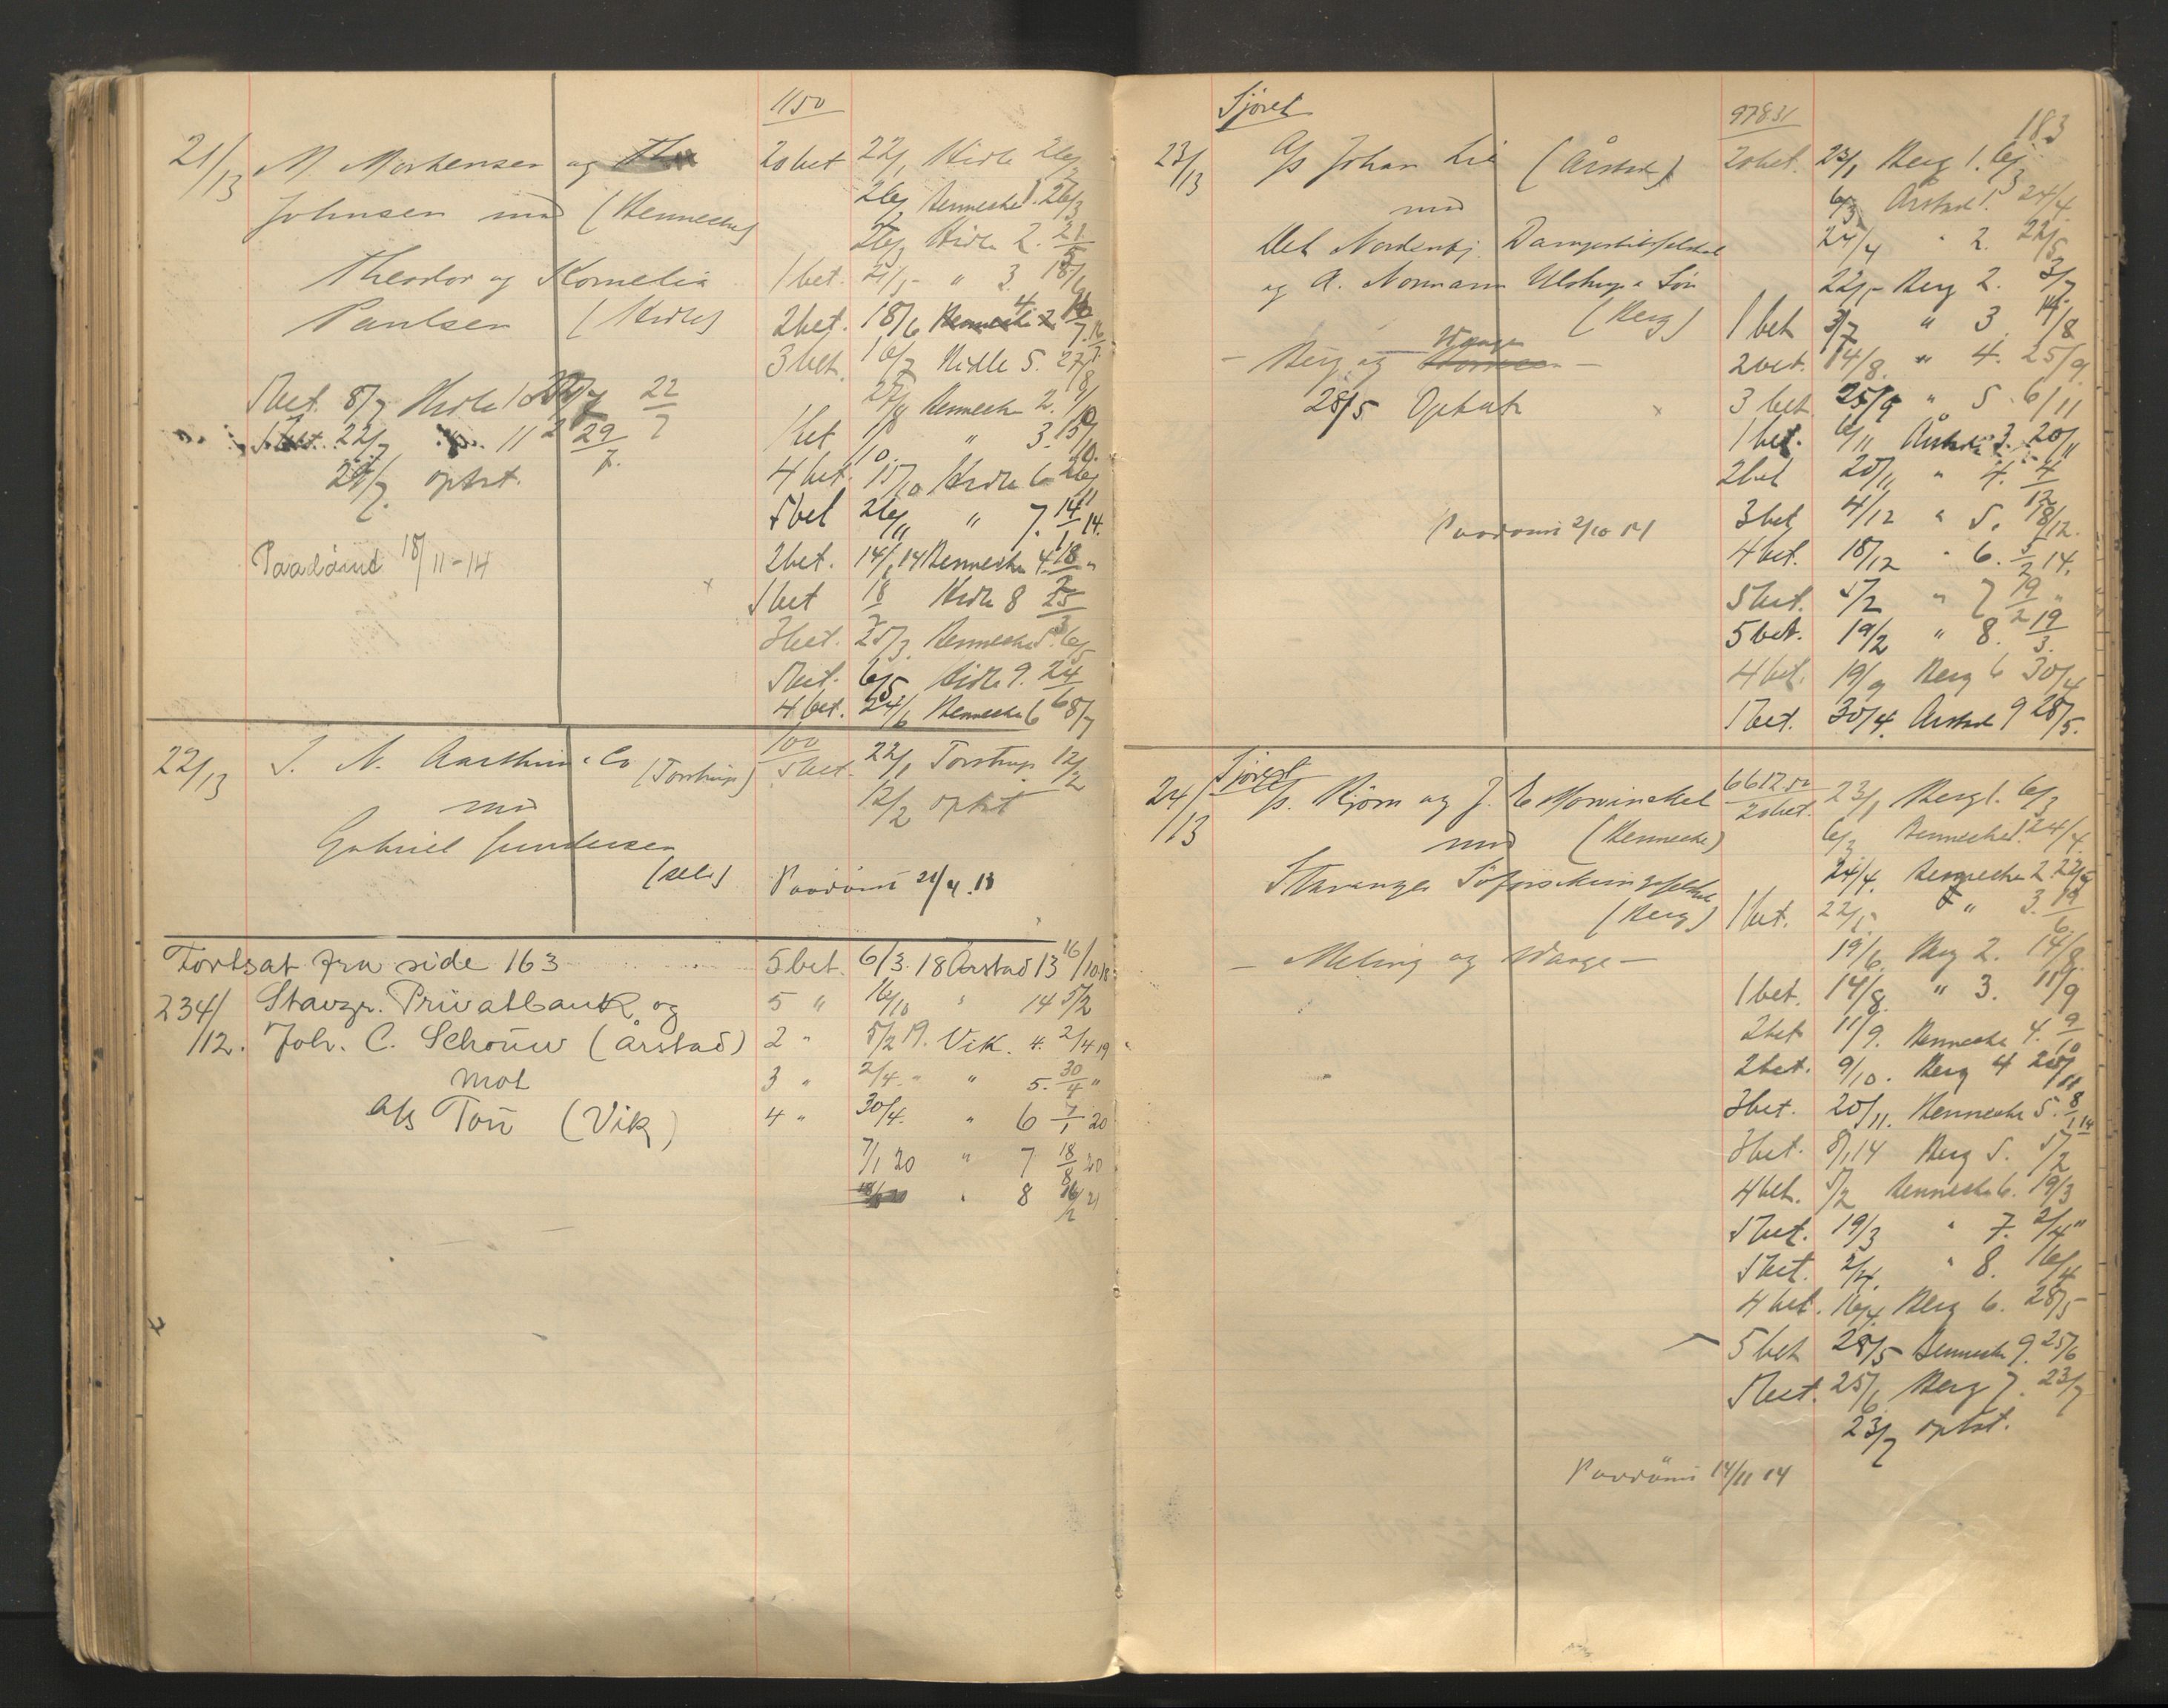 1150
21/13 M. Mortensen og
Johnsen mod (Bennecke)
Theodor og Kornelia
Paulsen (Hidle)
20 bet 22/1 Hidle 26/2
26/2 Bennecke 1. 26/3
26/3 Hidle 2. 21/5
1 bet. 21/5 " 3. 18/6
2 bet. 18/6 4 16/7
3 bet. 16/7 Hidle 5. 27/8
27/8 Bennecke 2. 1/10
1 bet 1/10 " 3. 15/10
4 bet. 15/10 Hidle 6 26/11
5 bet 26/11 " 7. 14/1 14.
2 bet. 14/1 14 Bennecke 4. 18/2 "
5 bet 18/2 Hidle 8 25/3
3 bet. 25/3 Bennecke 5. 6/5
5 bet. 6/5 Hidle 9. 24/6
4 bet. 24/6 Bennecke 6 8/7
5 bet. 8/7 Hidle 10 22/7
5 bet. 22/7 " 11 29/7
29/7 optat.
Paadømt 18/11-14
22/13 I. N. Aarthun & Co (Torstrup)
mod
Gabriel Gundersen
(selv)
100
5 bet. 22/1 Torstrup 12/2
12/2 optat
Paadømt 21/4.13
Fortsat fra side 163
234/12. Stavgr. Privatbank og
Joh. C. Schouw (Årstad)
mot
A/s Tou (Vik)
5 bet. 6/3. 18 Årstad 13 16/10 18
5 " 16/10 " 14 5/2
2 " 5/2 19. Vik. 4. 2/4 19
3 " 2/4. " " 5. 30/4 "
4 " 30/4. " 6 7/1 20
7/1 20 " 7 18/8 20
" 8 16/2 21
183
Sjøret
97831
23/13 A/s Johan Lie (Årstad)
mod
Det Nordenfj. Dampskibsselskab
og A. Normann Ulstrup & Søn
(Berg)
— Berg og Waage —
28/5 Optat
20 bet. 23/1 Berg 1. 6/3
6/3 Årstad 1. 24/4.
24/4 " 2. 22/5
22/5 Berg 2. 3/7
1 bet 3/7 " 3 14/8
2 bet. 14/8. " 4. 25/9.
3 bet 25/9 " 5. 6/11
1 bet. 6/11 Årstad 3. 20/11
2 bet 20/11 " 4. 4/12
3 bet 4/12 " 5. 18/12.
4 bet. 18/12 " 6. 5/2 14.
5 bet. 5/2 " 7 19/2 "
5 bet. 19/2 " 8. 19/3.
4 bet. 19/3 Berg 6 30/4
5 bet. 30/4. Årstad 9 28/5.
Paadømt 2/10 14
Sjøret
6612.50
24/13 A/s. Bjørn og J. E. Mowinckel
mod (Bennecke)
Stavanger Søforsikringsselskab
(Berg)
— Meling og Waage —
20 bet. 23/1 Berg 1. 6/3
6/3 Bennecke 1. 24/4.
24/4. Bennecke 2. 22/5
1 bet. 22/5 " 3. 19/6
19/6. Berg 2. 14/8.
1 bet. 14/8. " 3. 11/9
2 bet 11/9. Bennecke 4. 9/10
2 bet. 9/10. Berg 4 20/11
3 bet. 20/11. Bennecke 5. 8/1 14
3 bet. 8/1 14 Berg 5. 5/2
4 bet. 5/2 Bennecke 6. 19/3
5 bet. 19/3 " 7. 2/4 "
5 bet. 2/4. " 8. 16/4
4 bet. 16/4 Berg 6. 28/5
5 bet 28/5 Bennecke 9. 25/6
5 bet. 25/6 Berg 7. 23/7
23/7 optat.
Paadømt 14/11 14